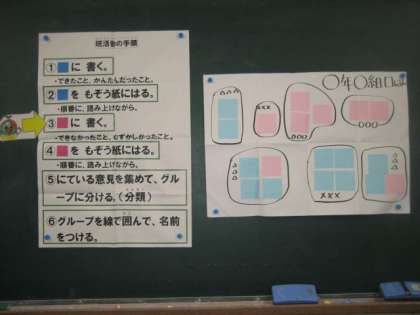 班活動の手順
① に 書く。
・できたこと、かんたんだったこと。
② を もぞう紙にはる。
・順番に、読み上げながら。
③ に 書く。
・できなかったこと、むずかしかったこと。
④ を もぞう紙にはる。
・順番に、読み上げながら。
⑤にている意見を集めて、グル
ープに分ける。(分類)
⑥グループを線で囲んで、名前
をつける。
〇年〇組
△△△
×××
〇〇〇
〇〇〇
△△△
×××
△△△